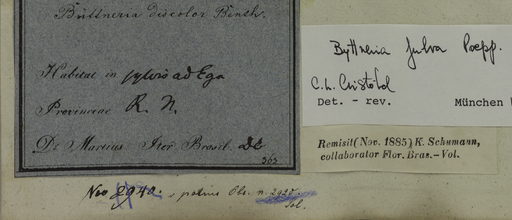 Büttneria discolor Benth.
Habitat in sylvis ad Ega
Provinciae R. N.
Dr Martius Iter Brasil. Dbr
363
Byttneria fulva Poepp.
C. L. Cristóbal
Det. - rev. München
Remisit (Nov. 1885) K. Schumann,
collaborator Flor. Bras. - Vol.
Nro 2940. potius Obs. n. 2920.